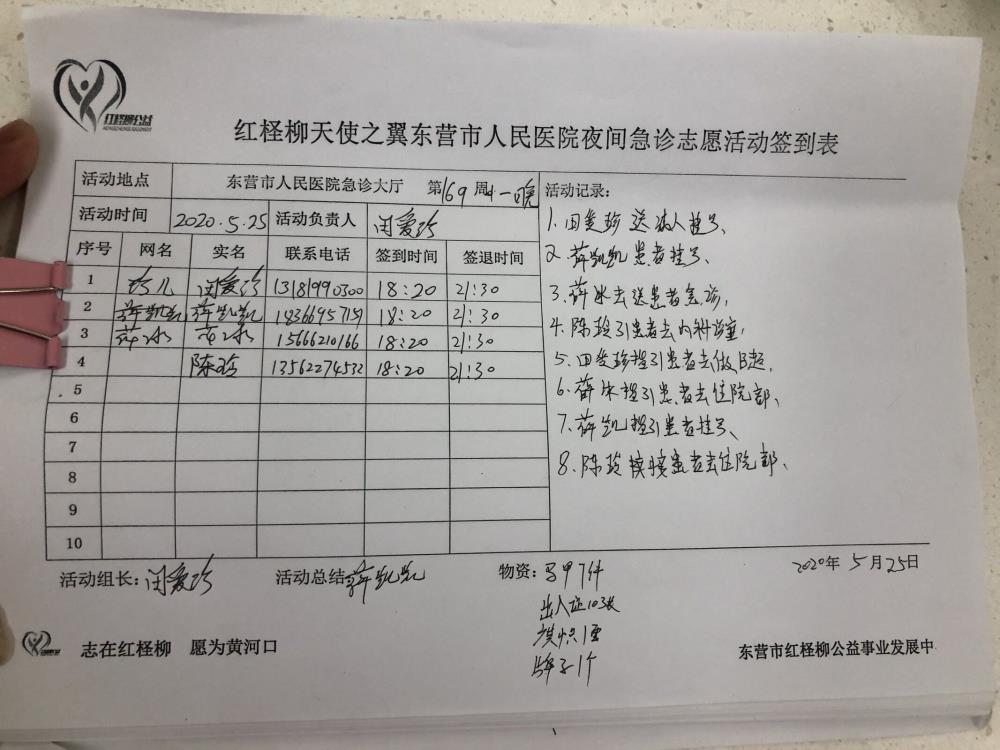 红柽柳公益
红柽柳天使之翼东营市人民医院夜间急诊志愿活动签到表
活动地点 东营市人民医院急诊大厅 第169周 一晚
活动时间 2020.5.25 活动负责人 闵爱珍
序号 网名 实名 联系电话 签到时间 签退时间
1 珍儿 闵爱珍 13181990300 18:20 21:30
2 薛凯凯 薛凯凯 18366957157 18:20 21:30
3 薛冰 薛冰 15666210166 18:20 21:30
4 陈玲 13562274532 18:20 21:30
5
6
7
8
9
10
活动记录:
1.闵爱珍送病人挂号、
2.薛凯凯患者挂号、
3.薛冰去送患者急诊,
4.陈玲引患者去内科诊室
5.闵爱珍指引患者去做B超,
6.薛冰指引患者去住院部、
7.薛凯指引患者挂号、
8.陈玲 患者去住院部、
活动组长:闵爱珍 活动总结:薛凯凯 物资:马甲7件
出入证10张
旗帜1面
牌子1个
2020年5月25日
志在红柽柳 愿为黄河口
东营市红柽柳公益事业发展中